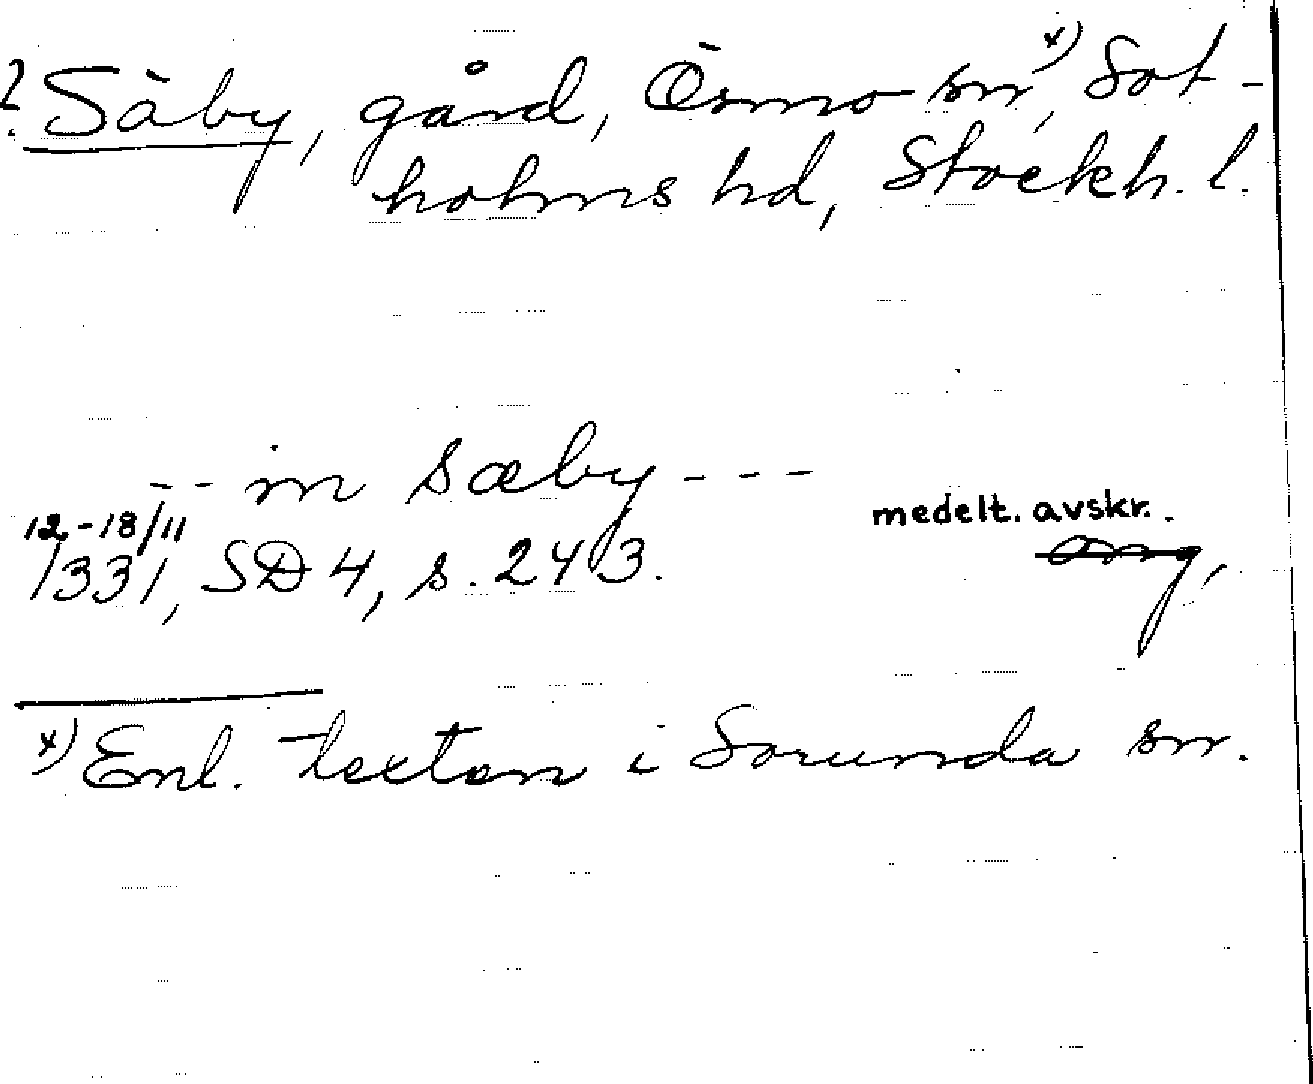 ? Säby, gård, Ösmo sn x), Sot-
holms hd, Stockh. l.
-- in sæby ---
12-18/11 medelt. avskr.
1331, SD 4, s. 243. orig,
x) Enl. texten i Sorunda sn.